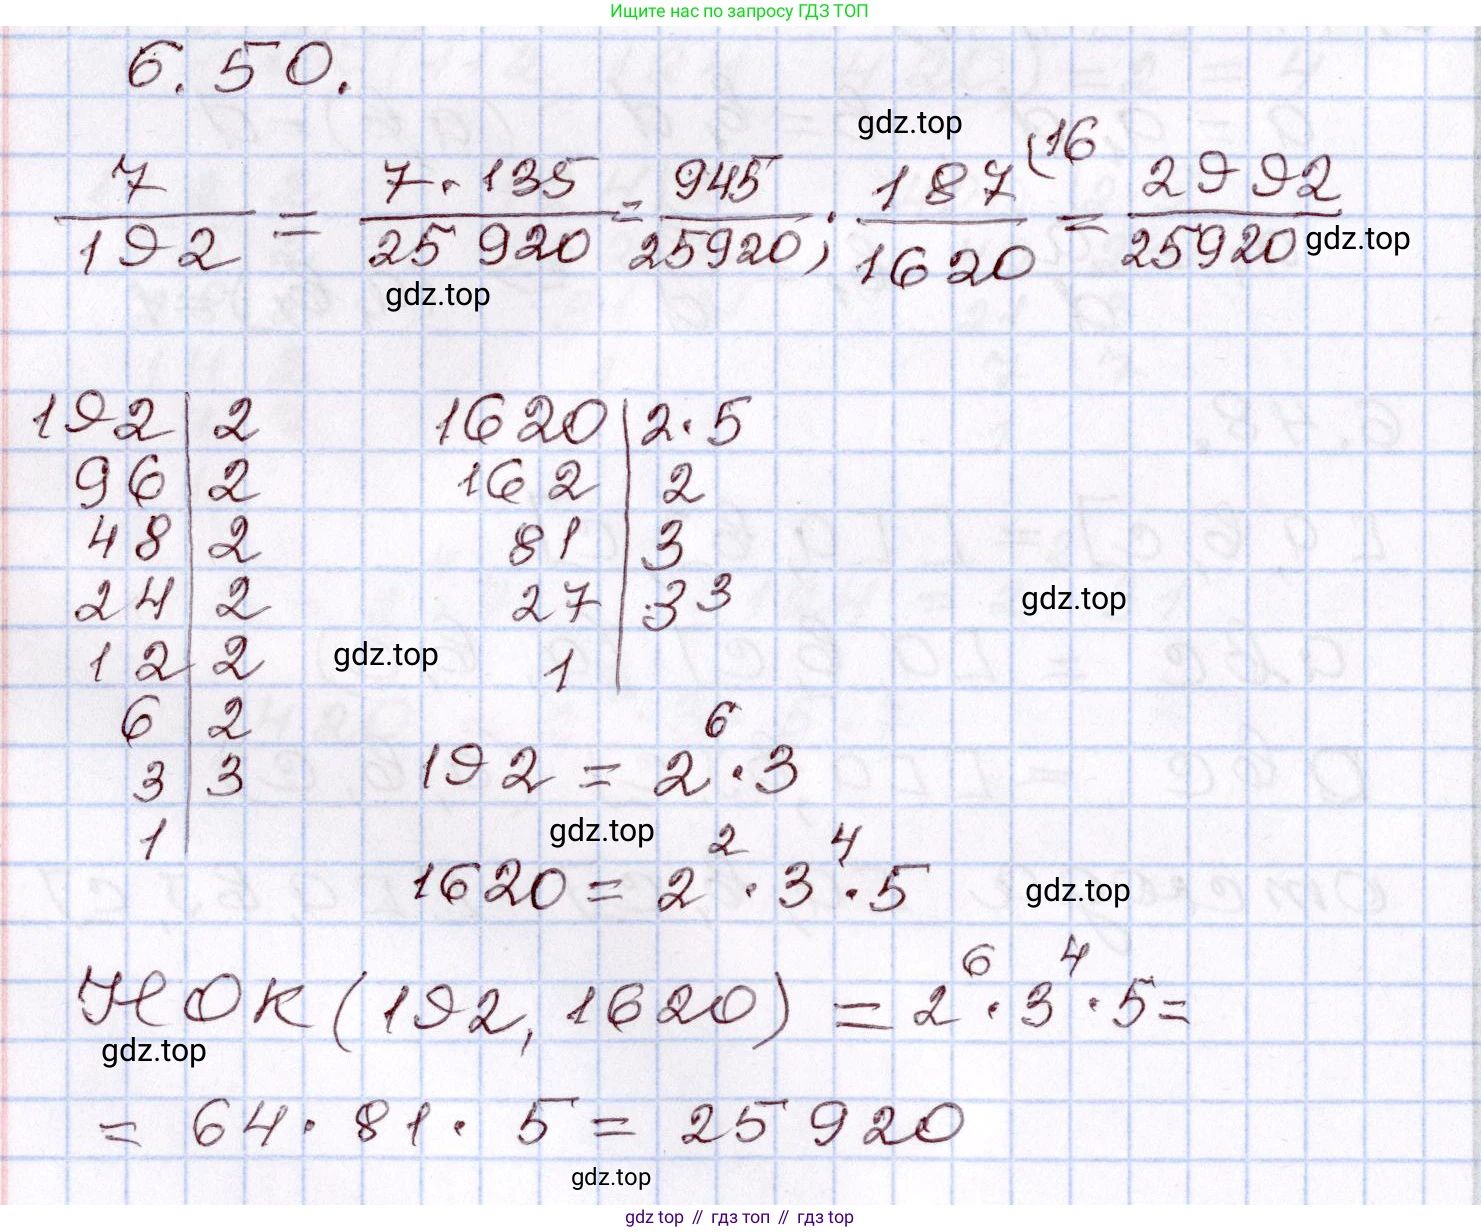 Ищите нас по запросу ГДЗ ТОП
6.50.
gdz.top
7/192 = 7·135/25920 = 945/25920; 187/1620 (16 = 2992/25920
gdz.top
gdz.top
192 | 2 1620 | 2·5
96 | 2 162 | 2
48 | 2 81 | 3
24 | 2 27 | 3³
gdz.top
12 | 2 1
gdz.top
6 | 2
3 | 3 192 = 2⁶·3
1
gdz.top
1620 = 2²·3⁴·5
gdz.top
НОК(192, 1620) = 2⁶·3⁴·5=
gdz.top
= 64·81·5 = 25920
gdz.top
gdz top // гдз топ // гдз top